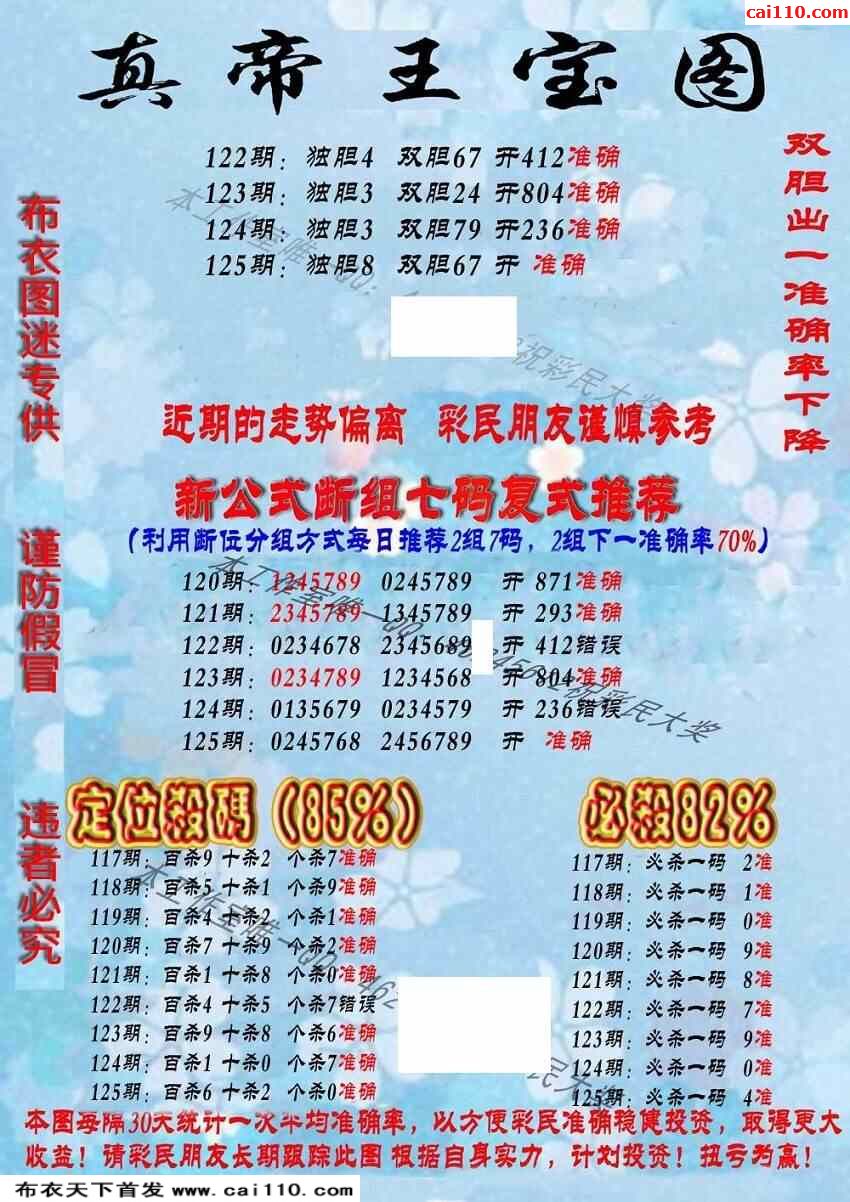 cai110.com
真帝王宝图
122期：独胆4 双胆67 开412准确
123期：独胆3 双胆24 开804准确
124期：独胆3 双胆79 开236准确
125期：独胆8 双胆67 开 准确
双胆出一准确率下降
布衣图迷专供
谨防假冒
违者必究
近期的走势偏离 彩民朋友谨慎参考
新公式断组七码复式推荐
（利用断位分组方式每日推荐2组7码，2组下一准确率70%）
120期：1245789 0245789 开 871准确
121期：2345789 1345789 开 293准确
122期：0234678 2345689 开 412错误
123期：0234789 1234568 开 804准确
124期：0135679 0234579 开 236错误
125期：0245768 2456789 开 准确
定位殺碼（85%）
117期：百杀9 十杀2 个杀7准确
118期：百杀5 十杀1 个杀9准确
119期：百杀4 十杀2 个杀1准确
120期：百杀7 十杀9 个杀2准确
121期：百杀1 十杀8 个杀0准确
122期：百杀4 十杀5 个杀7错误
123期：百杀9 十杀8 个杀6准确
124期：百杀1 十杀0 个杀7准确
125期：百杀6 十杀2 个杀0准确
必殺82%
117期：必杀一码 2准
118期：必杀一码 1准
119期：必杀一码 0准
120期：必杀一码 9准
121期：必杀一码 8准
122期：必杀一码 7准
123期：必杀一码 9准
124期：必杀一码 0准
125期：必杀一码 4准
本图每隔30天统计一次平均准确率，以方便彩民准确稳健投资，取得更大
收益！请彩民朋友长期跟踪此图 根据自身实力，计划投资！扭亏为赢！
布衣天下首发 www.cai110.com